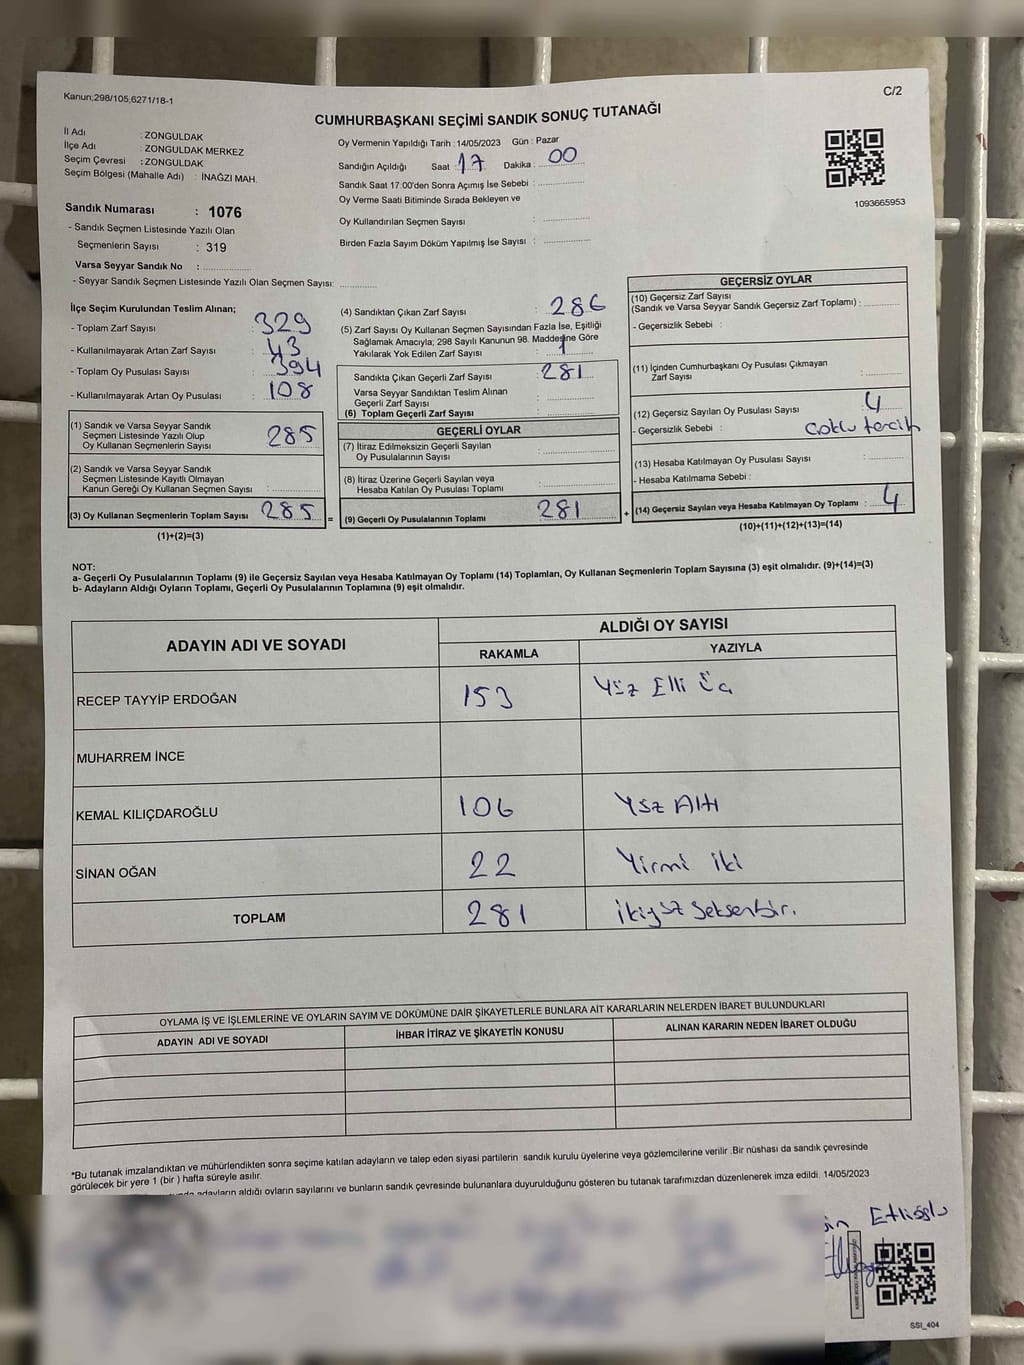 Kanun;298/105,6271/18-1
C/2
CUMHURBAŞKANI SEÇİMİ SANDIK SONUÇ TUTANAĞI
İl Adı : ZONGULDAK
İlçe Adı : ZONGULDAK MERKEZ
Seçim Çevresi : ZONGULDAK
Seçim Bölgesi (Mahalle Adı) : İNAĞZI MAH.
Oy Vermenin Yapıldığı Tarih : 14/05/2023 Gün : Pazar
Sandığın Açıldığı Saat 17 Dakika : 00
Sandık Saat 17:00'den Sonra Açımış İse Sebebi :
Oy Verme Saati Bitiminde Sırada Bekleyen ve
Oy Kullandırılan Seçmen Sayısı :
Birden Fazla Sayım Döküm Yapılmış İse Sayısı :
1093665953
Sandık Numarası : 1076
- Sandık Seçmen Listesinde Yazılı Olan
Seçmenlerin Sayısı : 319
Varsa Seyyar Sandık No :
- Seyyar Sandık Seçmen Listesinde Yazılı Olan Seçmen Sayısı:
İlçe Seçim Kurulundan Teslim Alınan;
- Toplam Zarf Sayısı : 329
- Kullanılmayarak Artan Zarf Sayısı : 43
- Toplam Oy Pusulası Sayısı : 394
- Kullanılmayarak Artan Oy Pusulası : 108
(1) Sandık ve Varsa Seyyar Sandık
Seçmen Listesinde Yazılı Olup
Oy Kullanan Seçmenlerin Sayısı : 285
(2) Sandık ve Varsa Seyyar Sandık
Seçmen Listesinde Kayıtlı Olmayan
Kanun Gereği Oy Kullanan Seçmen Sayısı :
(3) Oy Kullanan Seçmenlerin Toplam Sayısı : 285
(1)+(2)=(3)
(4) Sandıktan Çıkan Zarf Sayısı : 286
(5) Zarf Sayısı Oy Kullanan Seçmen Sayısından Fazla İse, Eşitliği
Sağlamak Amacıyla; 298 Sayılı Kanunun 98. Maddesine Göre
Yakılarak Yok Edilen Zarf Sayısı : 1
Sandıkta Çıkan Geçerli Zarf Sayısı : 281
Varsa Seyyar Sandıktan Teslim Alınan
Geçerli Zarf Sayısı :
(6) Toplam Geçerli Zarf Sayısı :
GEÇERLİ OYLAR
(7) İtiraz Edilmeksizin Geçerli Sayılan
Oy Pusulalarının Sayısı :
(8) İtiraz Üzerine Geçerli Sayılan veya
Hesaba Katılan Oy Pusulası Toplamı :
= (9) Geçerli Oy Pusulalarının Toplamı 281
GEÇERSİZ OYLAR
(10) Geçersiz Zarf Sayısı
(Sandık ve Varsa Seyyar Sandık Geçersiz Zarf Toplamı) :
- Geçersizlik Sebebi :
(11) İçinden Cumhurbaşkanı Oy Pusulası Çıkmayan
Zarf Sayısı :
(12) Geçersiz Sayılan Oy Pusulası Sayısı : 4
- Geçersizlik Sebebi : Çoklu tercih
(13) Hesaba Katılmayan Oy Pusulası Sayısı :
- Hesaba Katılmama Sebebi :
+ (14) Geçersiz Sayılan veya Hesaba Katılmayan Oy Toplamı : 4
(10)+(11)+(12)+(13)=(14)
NOT:
a- Geçerli Oy Pusulalarının Toplamı (9) ile Geçersiz Sayılan veya Hesaba Katılmayan Oy Toplamı (14) Toplamları, Oy Kullanan Seçmenlerin Toplam Sayısına (3) eşit olmalıdır. (9)+(14)=(3)
b- Adayların Aldığı Oyların Toplamı, Geçerli Oy Pusulalarının Toplamına (9) eşit olmalıdır.
ADAYIN ADI VE SOYADI ALDIĞI OY SAYISI
RAKAMLA YAZIYLA
RECEP TAYYİP ERDOĞAN 153 Yüz Elli Üç
MUHARREM İNCE
KEMAL KILIÇDAROĞLU 106 Yüz Altı
SİNAN OĞAN 22 Yirmi iki
TOPLAM 281 ikiyüz Seksenbir.
OYLAMA İŞ VE İŞLEMLERİNE VE OYLARIN SAYIM VE DÖKÜMÜNE DAİR ŞİKAYETLERLE BUNLARA AİT KARARLARIN NELERDEN İBARET BULUNDUKLARI
ADAYIN ADI VE SOYADI İHBAR İTİRAZ VE ŞİKAYETİN KONUSU ALINAN KARARIN NEDEN İBARET OLDUĞU
*Bu tutanak imzalandıktan ve mühürlendikten sonra seçime katılan adayların ve talep eden siyasi partilerin sandık kurulu üyelerine veya gözlemcilerine verilir .Bir nüshası da sandık çevresinde
görülecek bir yere 1 (bir ) hafta süreyle asılır.
adayların aldığı oyların sayılarını ve bunların sandık çevresinde bulunanlara duyurulduğunu gösteren bu tutanak tarafımızdan düzenlenerek imza edildi. 14/05/2023
Etlioğlu
SSI_404